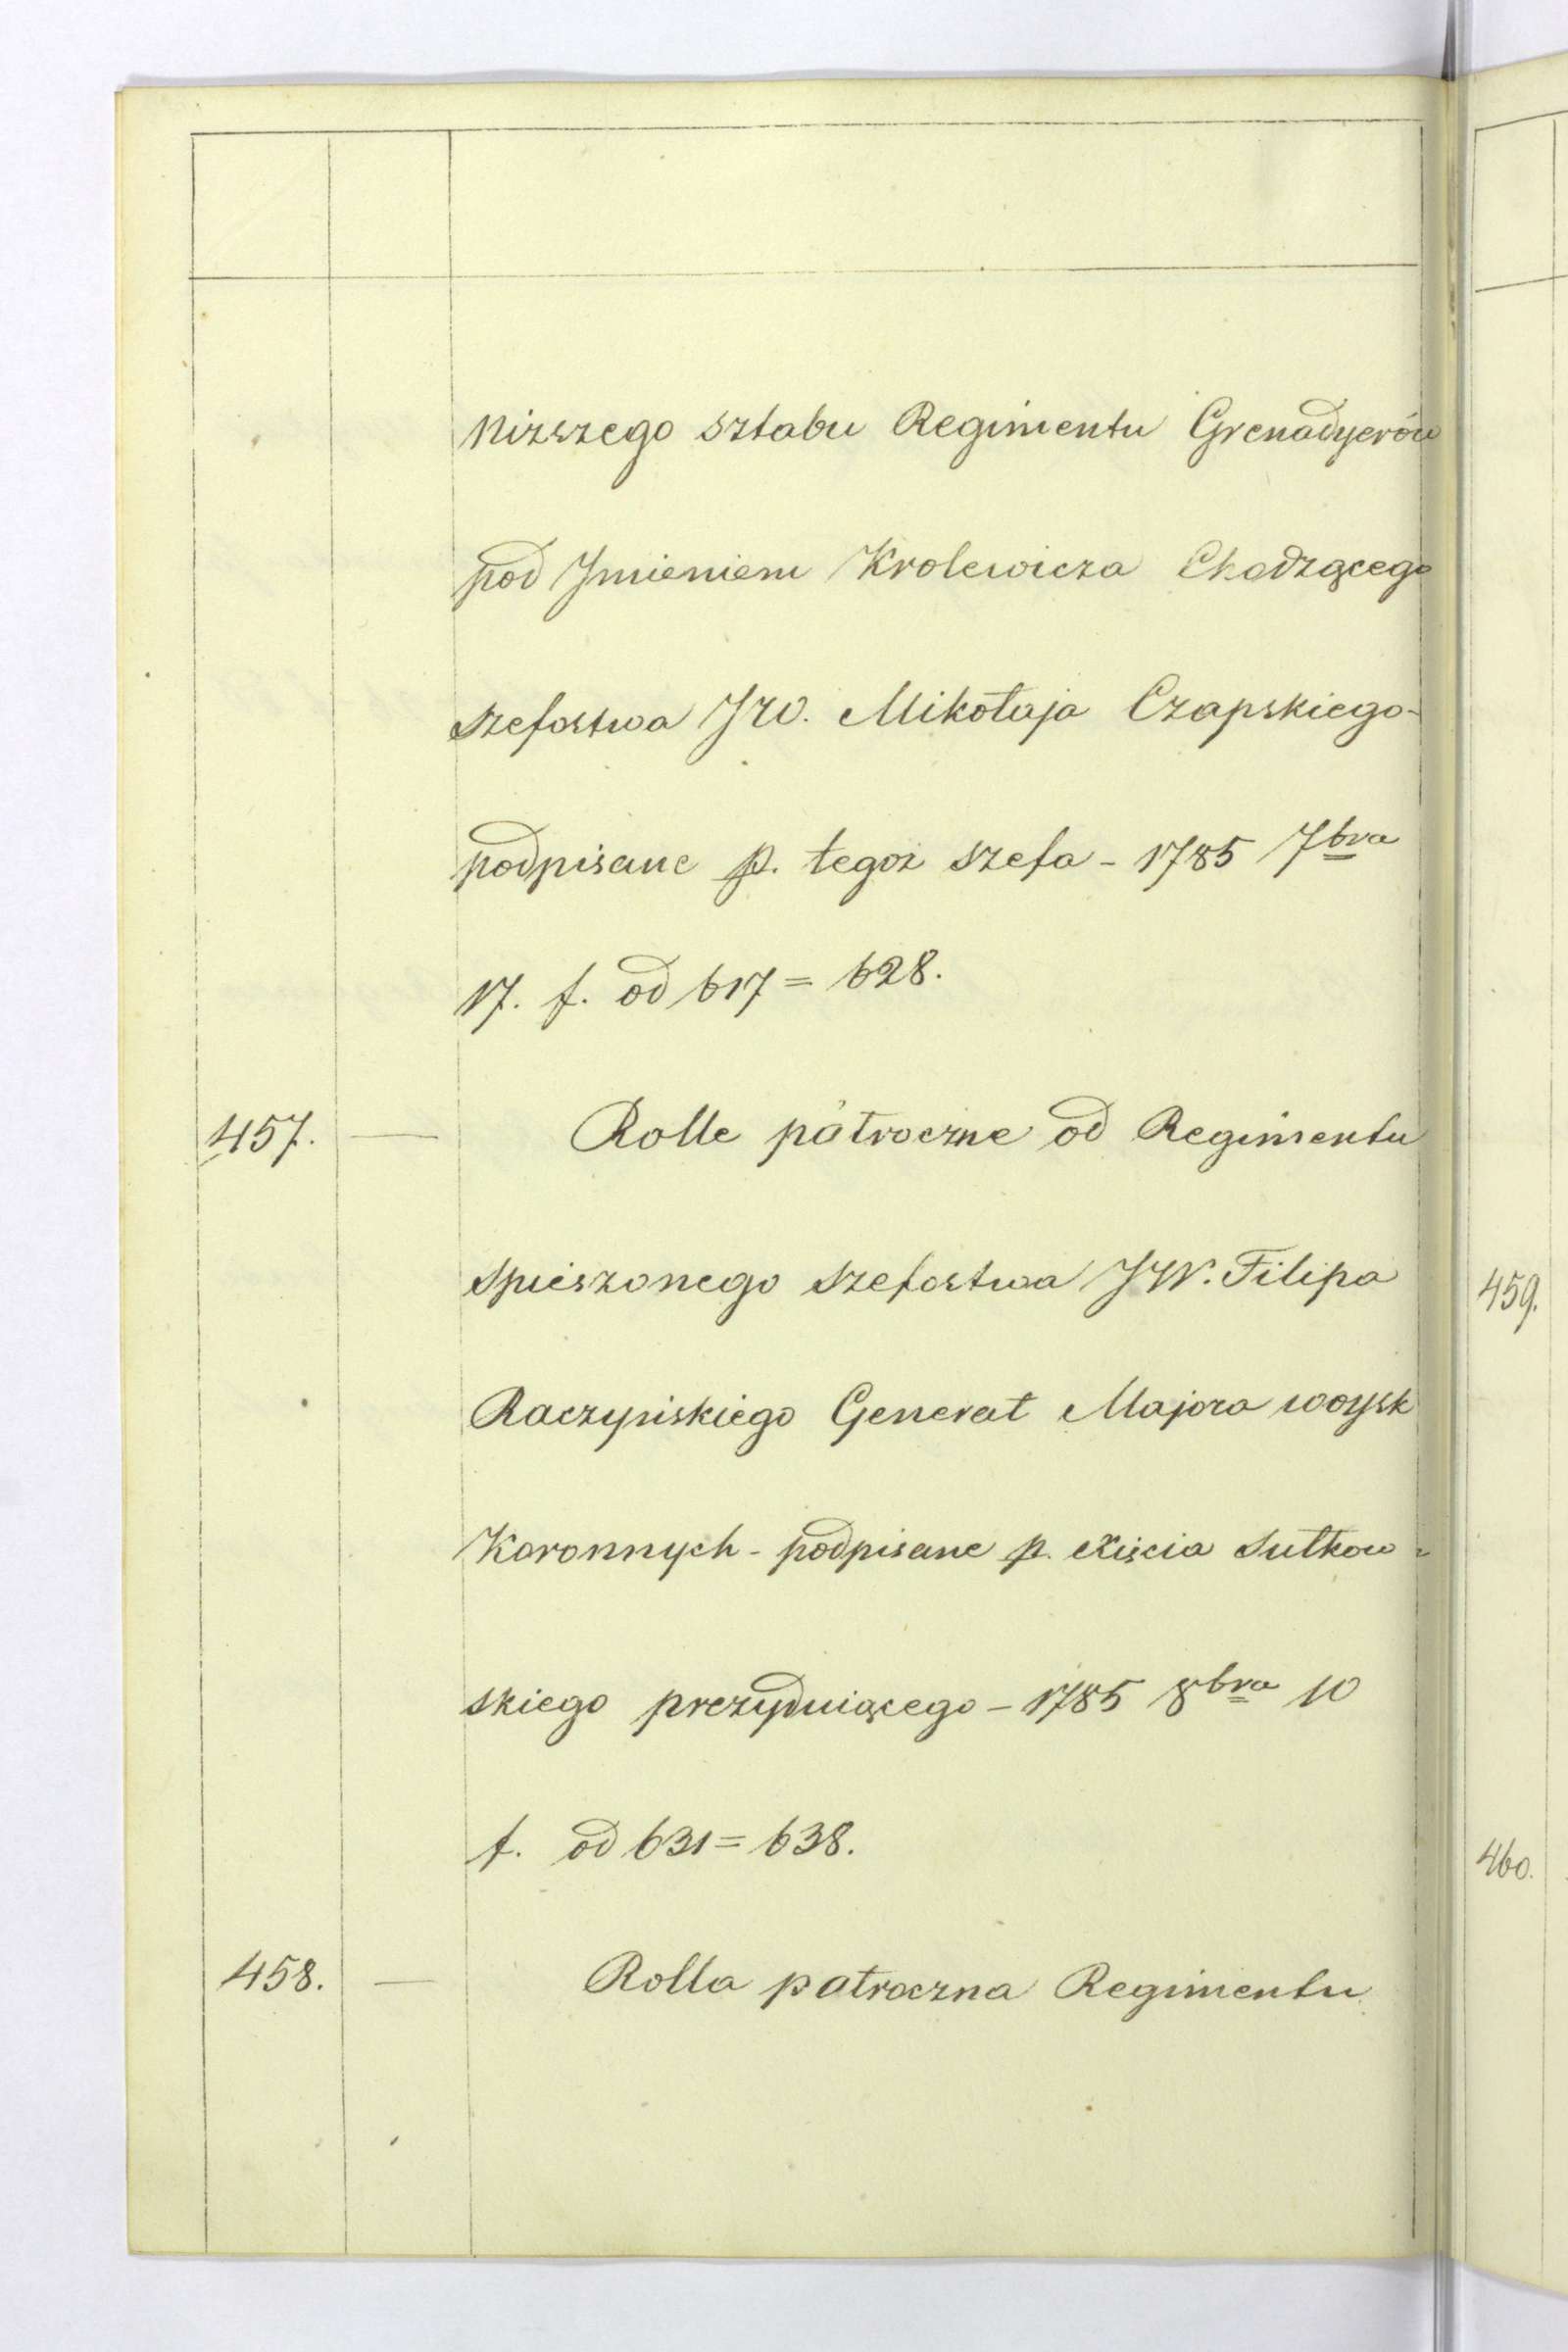 niższego sztabu Regimentu Grenadyerów
pod Jmieniem Krolewicza Chodzącego
szefostwa JW. Mikołaja Czapskiego -
podpisane p. tegoż szefa - 1785 7bra
17. f. od 617 = 628.
457. — Rolle półroczne od Regimentu
spieszonego szefostwa JW. Filipa
Raczyńskiego Generał Majora woysk
Koronnych - podpisane p. Xięcia Sułkow=
skiego prezyduiącego - 1785 8bra 10
f. od 631 = 638.
458. — Rolla połroczna Regimentu
459.
460.